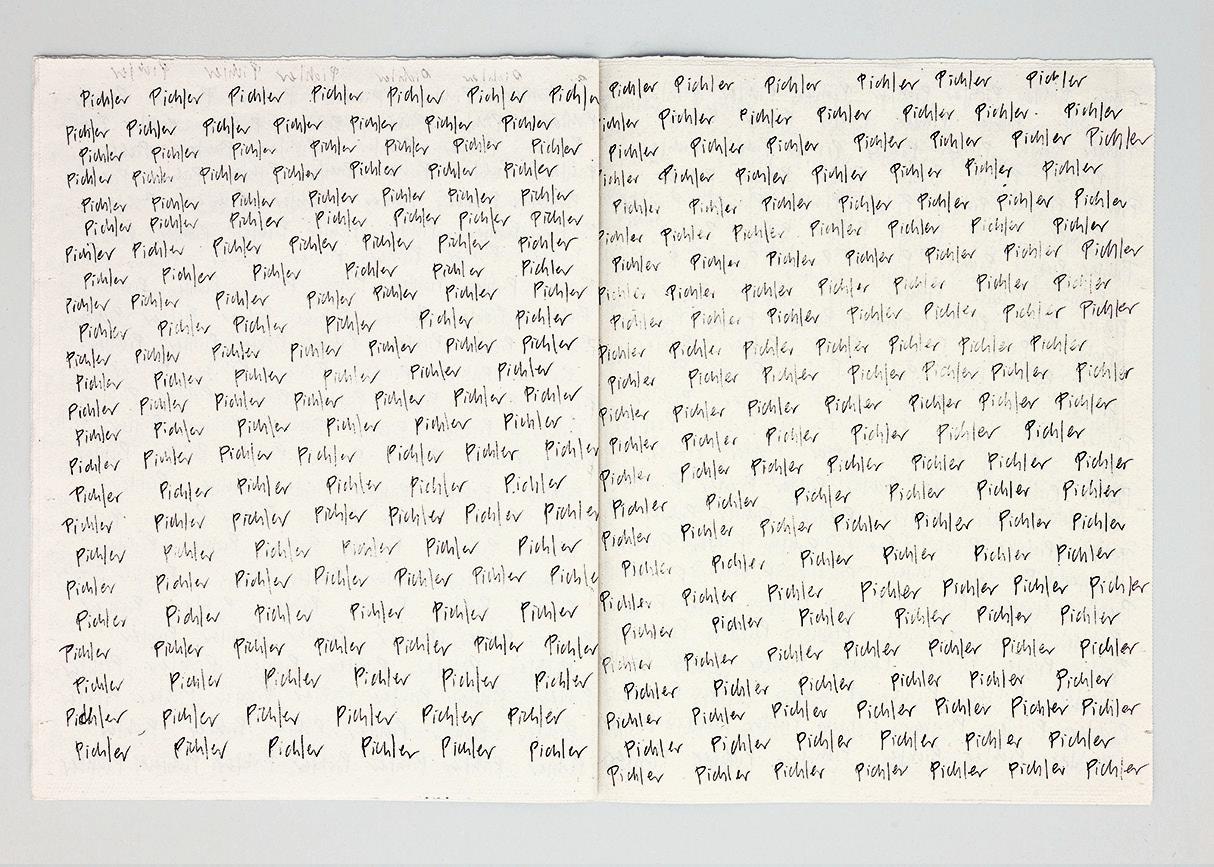 Pichler Pichler Pichler Pichler Pichler Pichler Pichler
Pichler Pichler Pichler Pichler Pichler Pichler Pichler
Pichler Pichler Pichler Pichler Pichler Pichler Pichler
Pichler Pichler Pichler Pichler Pichler Pichler Pichler
Pichler Pichler Pichler Pichler Pichler Pichler Pichler
Pichler Pichler Pichler Pichler Pichler Pichler Pichler
Pichler Pichler Pichler Pichler Pichler Pichler Pichler
Pichler Pichler Pichler Pichler Pichler Pichler
Pichler Pichler Pichler Pichler Pichler Pichler Pichler
Pichler Pichler Pichler Pichler Pichler Pichler
Pichler Pichler Pichler Pichler Pichler Pichler Pichler
Pichler Pichler Pichler Pichler Pichler Pichler
Pichler Pichler Pichler Pichler Pichler Pichler Pichler
Pichler Pichler Pichler Pichler Pichler Pichler
Pichler Pichler Pichler Pichler Pichler Pichler Pichler
Pichler Pichler Pichler Pichler Pichler Pichler
Pichler Pichler Pichler Pichler Pichler Pichler Pichler
Pichler Pichler Pichler Pichler Pichler Pichler
Pichler Pichler Pichler Pichler Pichler Pichler Pichler
Pichler Pichler Pichler Pichler Pichler Pichler
Pichler Pichler Pichler Pichler Pichler Pichler Pichler
Pichler Pichler Pichler Pichler Pichler Pichler
Pichler Pichler Pichler Pichler Pichler Pichler
Pichler Pichler Pichler Pichler Pichler Pichler
Pichler Pichler Pichler Pichler Pichler Pichler
Pichler Pichler Pichler Pichler Pichler Pichler Pichler
Pichler Pichler Pichler Pichler Pichler Pichler Pichler
Pichler Pichler Pichler Pichler Pichler Pichler Pichler
Pichler Pichler Pichler Pichler Pichler Pichler Pichler
Pichler Pichler Pichler Pichler Pichler Pichler Pichler
Pichler Pichler Pichler Pichler Pichler Pichler Pichler
Pichler Pichler Pichler Pichler Pichler Pichler Pichler
Pichler Pichler Pichler Pichler Pichler Pichler Pichler
Pichler Pichler Pichler Pichler Pichler Pichler Pichler
Pichler Pichler Pichler Pichler Pichler Pichler Pichler
Pichler Pichler Pichler Pichler Pichler Pichler Pichler
Pichler Pichler Pichler Pichler Pichler Pichler
Pichler Pichler Pichler Pichler Pichler Pichler Pichler
Pichler Pichler Pichler Pichler Pichler Pichler
Pichler Pichler Pichler Pichler Pichler Pichler Pichler
Pichler Pichler Pichler Pichler Pichler Pichler
Pichler Pichler Pichler Pichler Pichler Pichler Pichler
Pichler Pichler Pichler Pichler Pichler Pichler
Pichler Pichler Pichler Pichler Pichler Pichler Pichler
Pichler Pichler Pichler Pichler Pichler Pichler
Pichler Pichler Pichler Pichler Pichler Pichler Pichler
Pichler Pichler Pichler Pichler Pichler Pichler
Pichler Pichler Pichler Pichler Pichler Pichler Pichler